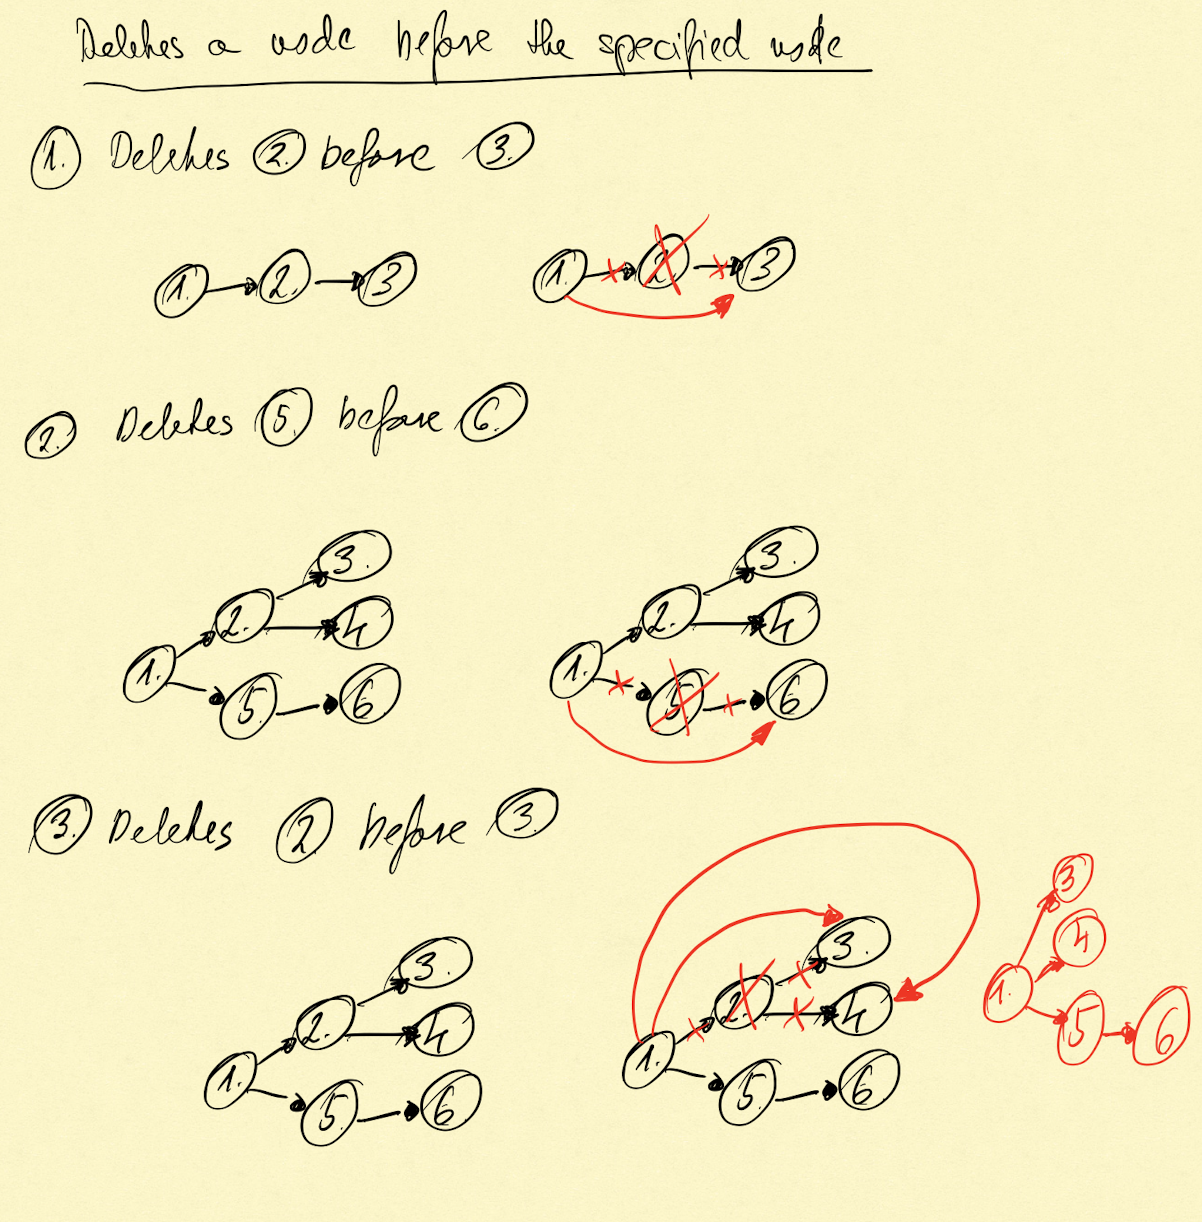 Deletes a node before the specified node
1. Deletes 2. before 3.
1. 2. 3
1. 2. 3
2. Deletes 5. before 6.
3.
2. 4
1.
5 6
3.
2. 4
1.
5 6
3. Deletes 2 before 3.
3.
2. 4
1.
5 6
3.
2. 4
1.
5 6
3
4
1.
5 6